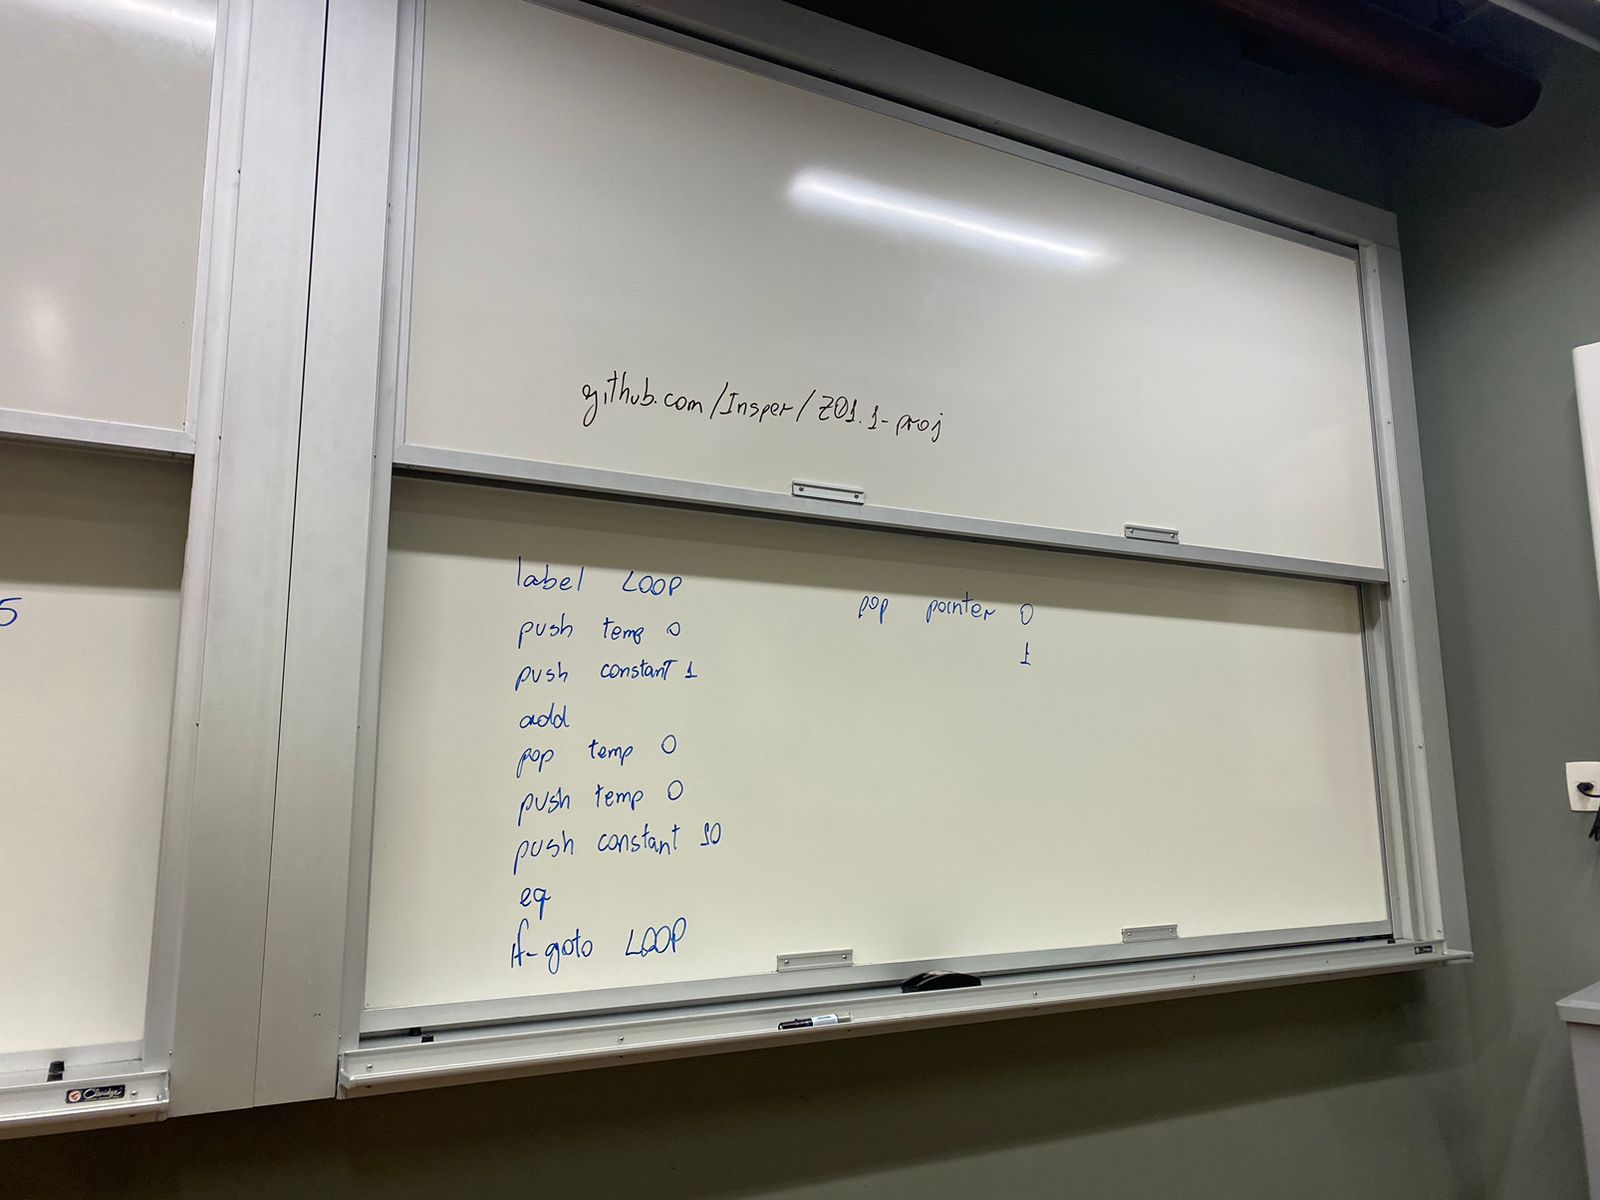 github.com/Insper/Z01.1-proj
label LOOP
push temp 0
push constant 1
add
pop temp 0
push temp 0
push constant 10
eq
if-goto LOOP
pop pointer 0
1
5